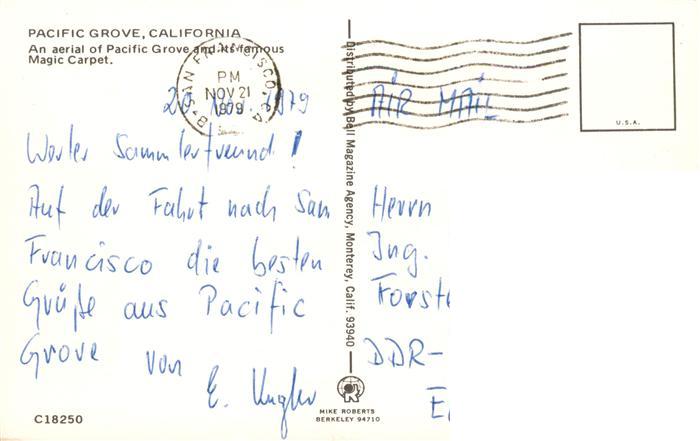 PACIFIC GROVE, CALIFORNIA
An aerial of Pacific Grove and its famous
Magic Carpet.
SAN FRANCISCO, CA
PM
NOV 21
1979
20. Nov. 1979
Werter Sammlerfreund!
Auf der Fahrt nach San
Francisco die besten
Grüße aus Pacific
Grove von
E.
C18250
Distributed by Bell Magazine Agency, Monterey, Calif. 93940
MIKE ROBERTS
BERKELEY 94710
U.S.A.
AIR MAIL
Herrn
Ing.
DDR-